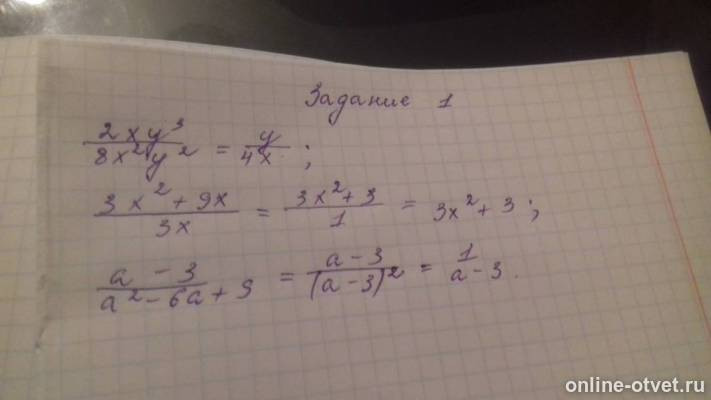 Задание 1
2xy³/8x²y² = y/4x ;
3x²+9x/3x = 3x²+3/1 = 3x²+3 ;
a-3/a²-6a+9 = a-3/(a-3)² = 1/a-3 .
online-otvet.ru